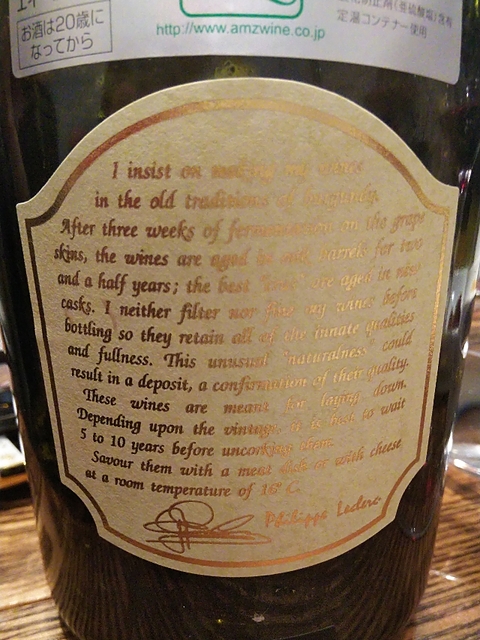 お酒は20歳に
なってから
http://www.amzwine.co.jp
酸化防止剤(亜硫酸塩)含有
定温コンテナー使用
I insist on making my wines
in the old traditions of burgundy.
After three weeks of fermentation on the grape
skins, the wines are aged in oak barrels for two
and a half years; the best "crus" are aged in new
casks. I neither filter nor fine my wines before
bottling so they retain all of the innate qualities
and fullness. This unusual "naturalness" could
result in a deposit, a confirmation of their quality.
These wines are meant for laying down.
Depending upon the vintage, it is best to wait
5 to 10 years before uncorking them.
Savour them with a meat dish or with cheese
at a room temperature of 16° C.
Philippe Leclerc